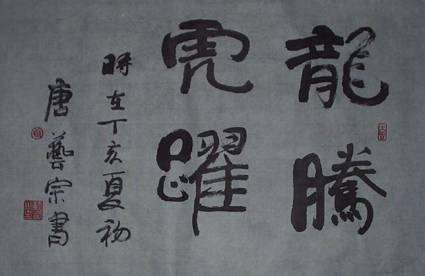 龍騰
虎躍
時在丁亥夏初
唐藝宗書